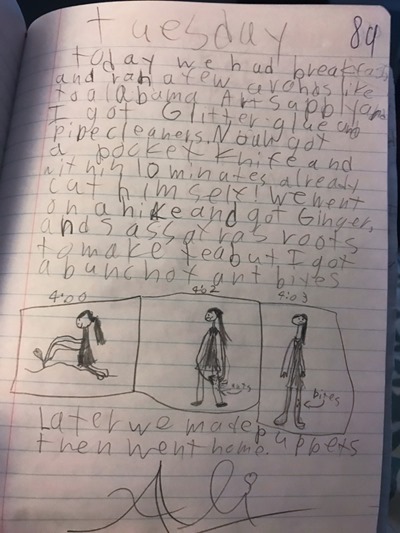 Tuesday 84
today we had breakfast
and ran a few arands like
to alabama Art Supply and
I got Glitter glue and
pipecleaners. Nouh got
a pocket knife and
within 10 minates already
cat himself! We went
on a hike and got Ginger,
and sassafras roots
to make tea but I got
a bunch of ant bites
4:00 4:02 4:03
ants
bites
Later we made puppets
then went home.
Ali